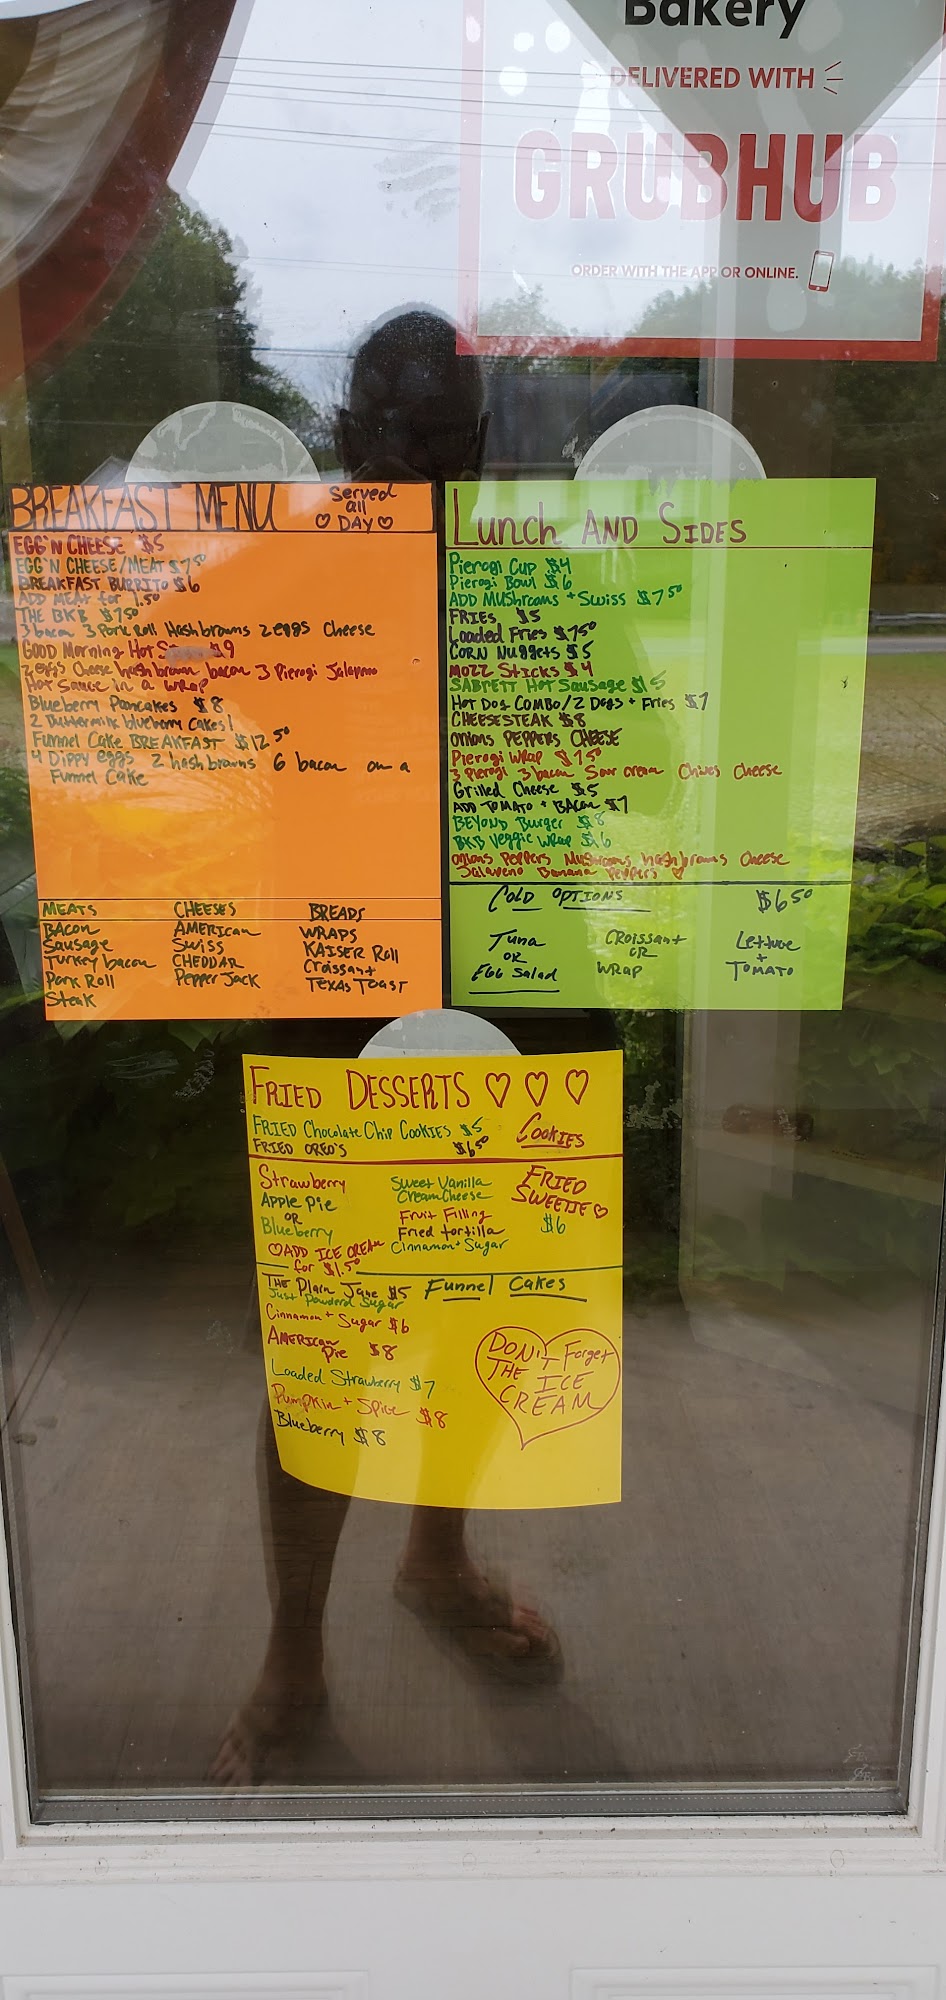 Bakery
DELIVERED WITH
GRUBHUB
ORDER WITH THE APP OR ONLINE.
BREAKFAST MENU
Served
all
♡ DAY ♡
EGG'N CHEESE $5
EGG'N CHEESE/MEAT $7⁵⁰
BREAKFAST BURRITO $6
ADD MEAT for 1.50
THE BKB $7⁵⁰
3 bacon 3 Pork Roll Hashbrowns 2 eggs Cheese
GOOD Morning Hot $9
2 eggs Cheese hashbrown bacon 3 Pierogi Jalapeno
Hot Sauce in a wrap
Blueberry Pancakes $8
2 Buttermilk blueberry Cakes!
Funnel Cake BREAKFAST $12⁵⁰
4 Dippy eggs 2 hashbrowns 6 bacon on a
Funnel Cake
MEATS CHEESES BREADS
BACON AMERICAN WRAPS
Sausage Swiss KAISER Roll
Turkey bacon CHEDDAR Croissant
Pork Roll Pepper Jack TEXAS TOAST
Steak
Lunch AND SIDES
Pierogi Cup $4
Pierogi Bowl $6
ADD Mushrooms + Swiss $7⁵⁰
FRIES $5
Loaded Fries $7⁵⁰
CORN Nuggets $5
Mozz Sticks $4
SABRETT Hot Sausage $5
Hot Dog Combo/2 Dogs + Fries $7
CHEESESTEAK $8
Onions PEPPERS CHEESE
Pierogi Wrap $7⁵⁰
3 Pierogi 3 bacon Sour cream Chives Cheese
Grilled Cheese $5
ADD TOMATO + BACON $7
BEYOND Burger $8
BKB Veggie Wrap $6
Onions Peppers Mushrooms hashbrowns Cheese
Jalapeno Banana Peppers ♡
COLD OPTIONS $6⁵⁰
Tuna CROissant Lettuce
OR OR +
Egg Salad WRAP TOMATO
FRIED DESSERTS ♡ ♡ ♡
FRIED Chocolate Chip Cookies $5 Cookies
FRIED OREO'S $6⁵⁰
Strawberry Sweet Vanilla FRIED
Apple Pie Cream Cheese SWEETIE ♡
OR Fruit Filling $6
Blueberry Fried tortilla
♡ADD ICE CREAM Cinnamon + Sugar
for $1.⁵⁰
THE Plain Jane $5 Funnel Cakes
Just Powderd Sugar
Cinnamon + Sugar $6
AMERICAN
Pie $8
Loaded Strawberry $7
Pumpkin + Spice $8
Blueberry $8
DON'T Forget
THE ICE
CREAM